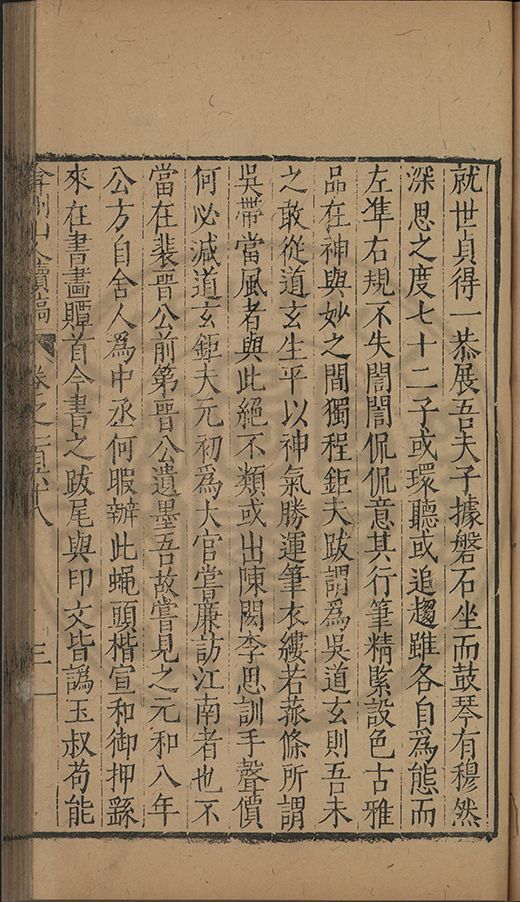 就世貞得一恭展吾夫子據磐石坐而鼓琴有穆然
深思之度七十二子或環聽或追趨雖各自爲態而
左準右規不失誾誾侃侃意其行筆精緊設色古雅
品在神與妙之間獨程鉅夫跋謂爲吳道玄則吾未
之敢從道玄生平以神氣勝運筆衣縷若蓀條所謂
吳帶當風者與此絕不類或出陳閎李思訓手聲價
何必減道玄鉅夫元初爲大官嘗廉訪江南者也不
當在裴晉公前第晉公遺墨吾故嘗見之元和八年
公方自舍人爲中丞何暇辦此蝇頭楷宣和御押繇
來在書畫贉首今書之跋尾與印文皆譌玉叔苟能
弇州山人續稿 卷之一百六十八 三